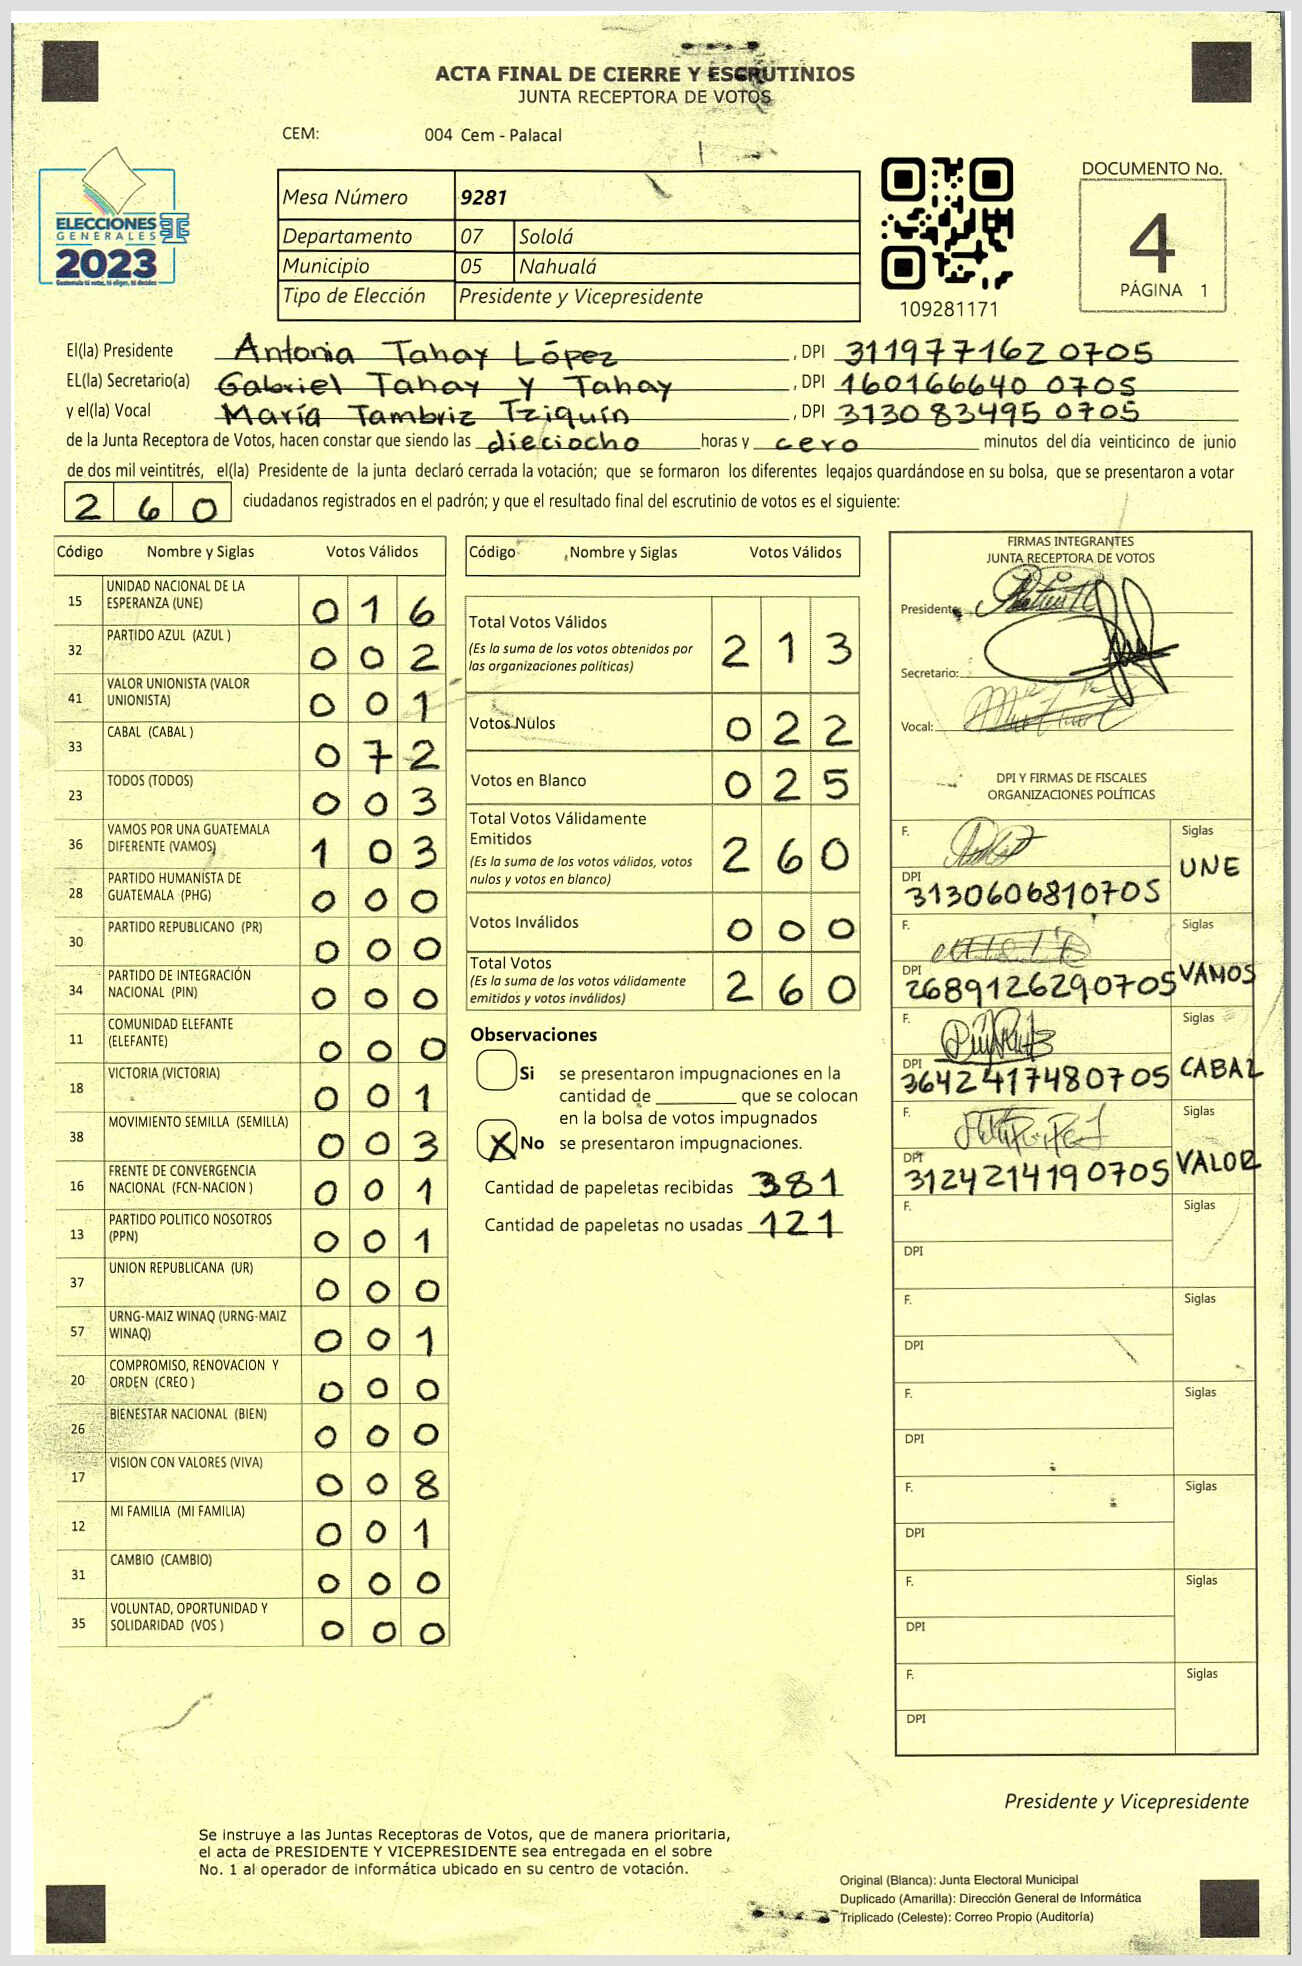 ACTA FINAL DE CIERRE Y ESCRUTINIOS
JUNTA RECEPTORA DE VOTOS
CEM: 004 Cem - Palacal
ELECCIONES
GENERALES
2023
Guatemala tú votas, tú eliges, tú decides
Mesa Número 9281
Departamento 07 Sololá
Municipio 05 Nahualá
Tipo de Elección Presidente y Vicepresidente
109281171
DOCUMENTO No.
4
PÁGINA 1
El(la) Presidente Antonia Tahay López, DPI 311977162 0705
EL(la) Secretario(a) Gabriel Tahay y Tahay, DPI 160166640 0705
y el(la) Vocal María Tambriz Tziquín, DPI 313083495 0705
de la Junta Receptora de Votos, hacen constar que siendo las dieciocho horas y cero minutos del día veinticinco de junio
de dos mil veintitrés, el(la) Presidente de la junta declaró cerrada la votación; que se formaron los diferentes legajos quardándose en su bolsa, que se presentaron a votar
2 6 0 ciudadanos registrados en el padrón; y que el resultado final del escrutinio de votos es el siguiente:
Código Nombre y Siglas Votos Válidos
15 UNIDAD NACIONAL DE LA ESPERANZA (UNE) 0 1 6
32 PARTIDO AZUL (AZUL ) 0 0 2
41 VALOR UNIONISTA (VALOR UNIONISTA) 0 0 1
33 CABAL (CABAL ) 0 7 2
23 TODOS (TODOS) 0 0 3
36 VAMOS POR UNA GUATEMALA DIFERENTE (VAMOS) 1 0 3
28 PARTIDO HUMANISTA DE GUATEMALA (PHG) 0 0 0
30 PARTIDO REPUBLICANO (PR) 0 0 0
34 PARTIDO DE INTEGRACIÓN NACIONAL (PIN) 0 0 0
11 COMUNIDAD ELEFANTE (ELEFANTE) 0 0 0
18 VICTORIA (VICTORIA) 0 0 1
38 MOVIMIENTO SEMILLA (SEMILLA) 0 0 3
16 FRENTE DE CONVERGENCIA NACIONAL (FCN-NACION ) 0 0 1
13 PARTIDO POLITICO NOSOTROS (PPN) 0 0 1
37 UNION REPUBLICANA (UR) 0 0 0
57 URNG-MAIZ WINAQ (URNG-MAIZ WINAQ) 0 0 1
20 COMPROMISO, RENOVACION Y ORDEN (CREO ) 0 0 0
26 BIENESTAR NACIONAL (BIEN) 0 0 0
17 VISION CON VALORES (VIVA) 0 0 8
12 MI FAMILIA (MI FAMILIA) 0 0 1
31 CAMBIO (CAMBIO) 0 0 0
35 VOLUNTAD, OPORTUNIDAD Y SOLIDARIDAD (VOS ) 0 0 0
Código Nombre y Siglas Votos Válidos
Total Votos Válidos 2 1 3
(Es la suma de los votos obtenidos por
las organizaciones políticas)
Votos Nulos 0 2 2
Votos en Blanco 0 2 5
Total Votos Válidamente
Emitidos 2 6 0
(Es la suma de los votos válidos, votos
nulos y votos en blanco)
Votos Inválidos 0 0 0
Total Votos 2 6 0
(Es la suma de los votos válidamente
emitidos y votos inválidos)
Observaciones
Si se presentaron impugnaciones en la
cantidad de ________ que se colocan
en la bolsa de votos impugnados
X No se presentaron impugnaciones.
Cantidad de papeletas recibidas 381
Cantidad de papeletas no usadas 121
FIRMAS INTEGRANTES
JUNTA RECEPTORA DE VOTOS
Presidente:
Secretario:
Vocal:
DPI Y FIRMAS DE FISCALES
ORGANIZACIONES POLÍTICAS
F. Siglas
UNE
DPI
3130606810705
F. Siglas
VAMOS
DPI
2689126290705
F. Siglas
CABAL
DPI
3642417480705
F. Siglas
VALOR
DPI
3124214190705
F. Siglas
DPI
F. Siglas
DPI
F. Siglas
DPI
F. Siglas
DPI
F. Siglas
DPI
F. Siglas
DPI
Presidente y Vicepresidente
Se instruye a las Juntas Receptoras de Votos, que de manera prioritaria,
el acta de PRESIDENTE Y VICEPRESIDENTE sea entregada en el sobre
No. 1 al operador de informática ubicado en su centro de votación.
Original (Blanca): Junta Electoral Municipal
Duplicado (Amarilla): Dirección General de Informática
Triplicado (Celeste): Correo Propio (Auditoría)